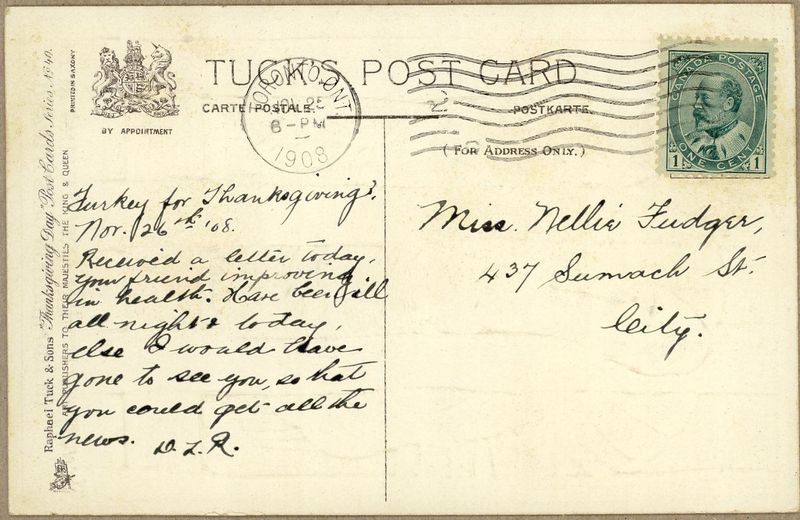 TUCK'S POST CARD
CARTE POSTALE.
POSTKARTE.
(FOR ADDRESS ONLY.)
BY APPOINTMENT
PRINTED IN SAXONY
Raphael Tuck & Sons' "Thanksgiving Day" Post Cards Series
ART PUBLISHERS TO THEIR MAJESTIES THE KING & QUEEN
TORONTO, ONT.
NOV 25
8-PM
1908
CANADA POSTAGE
1 ONE CENT 1
Turkey for Thanksgiving?
Nov. 26th '08.
Received a letter today,
your friend improving
in health. Have been ill
all night & today,
else I would have
gone to see you, so that
you could get all the
news. D.L.R.
Miss. Nellie Fudger,
437 Sumach St.
City.